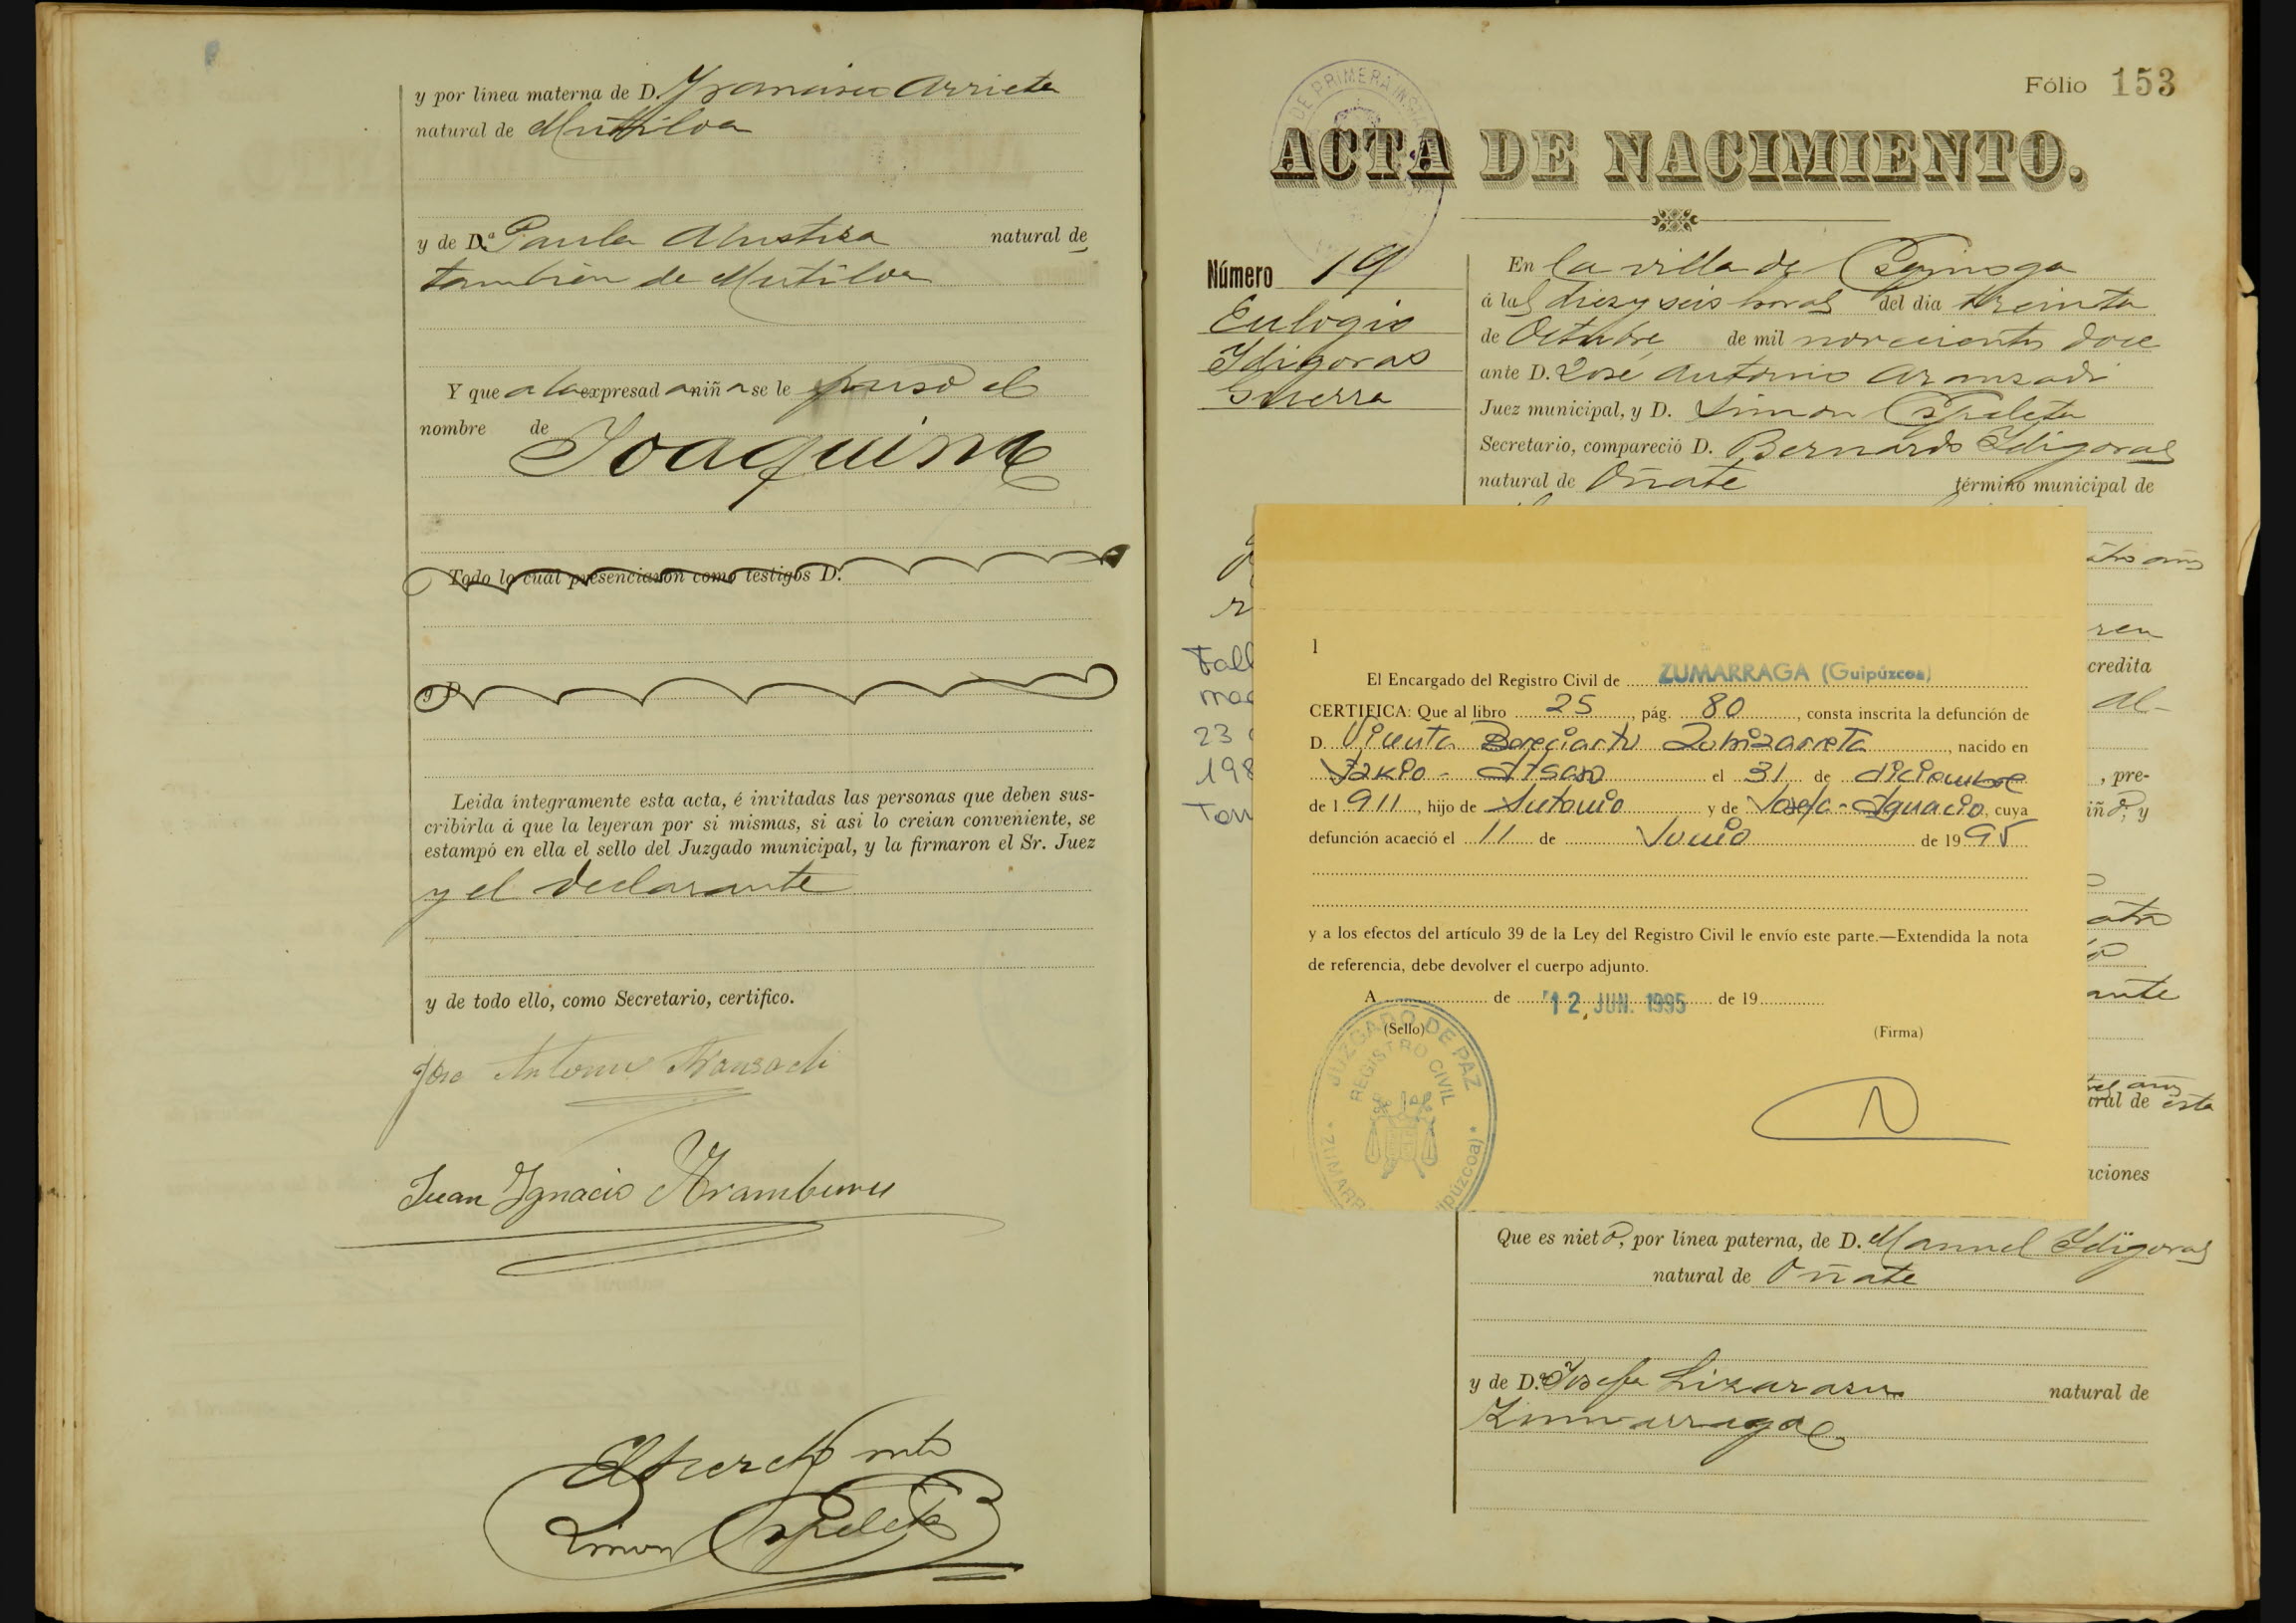 y por línea materna de D. Francisco Arrieta
natural de Mutiloa
y de D.ª Paula Alustiza natural de
también de Mutiloa
Y que a la expresad a niñ a se le puso el
nombre de
Joaquina
Todo lo cual presenciaron como testigos D.
y D.
Leida íntegramente esta acta, é invitadas las personas que deben sus-
cribirla á que la leyeran por si mismas, si asi lo creian conveniente, se
estampó en ella el sello del Juzgado municipal, y la firmaron el Sr. Juez
y el declarante
y de todo ello, como Secretario, certifico.
José Antonio Aranzadi
Juan Ignacio Aramburu
Simon Ezpeleta
Fólio 153
DE PRIMERA INSTA
ACTA DE NACIMIENTO.
Número 19
Eulogio
Idigoras
Guerra
En la villa de Ezquioga
á las diez y seis horas del dia treinta
de Octubre de mil novecientos doce
ante D. José Antonio Aranzadi
Juez municipal, y D. Simon Ezpeleta
Secretario, compareció D. Bernardo Idigoras
natural de Oñate término municipal de
Fall
mad
23
198
Tom
credita
, pre-
iñ o, y
ante
ural de esta
aciones
1
El Encargado del Registro Civil de ZUMARRAGA (Guipúzcoa)
CERTIFICA: Que al libro 25, pág. 80, consta inscrita la defunción de
D. Vicenta Bereciartu Zubizarreta, nacido en
Itsaso el 31 de diciembre
de 1 911, hijo de Antonio y de Josefa-Ignacia, cuya
defunción acaeció el 11 de Junio de 19 95
y a los efectos del artículo 39 de la Ley del Registro Civil le envío este parte.—Extendida la nota
de referencia, debe devolver el cuerpo adjunto.
A de 12 JUN. 1995 de 19
(Sello) (Firma)
JUZGADO DE PAZ
REGISTRO CIVIL
ZUMARR
ipúzcoa)
Que es niet o, por línea paterna, de D. Manuel Idigoras
natural de Oñate
y de D.ª Josefa Lizarazu natural de
Zumarraga